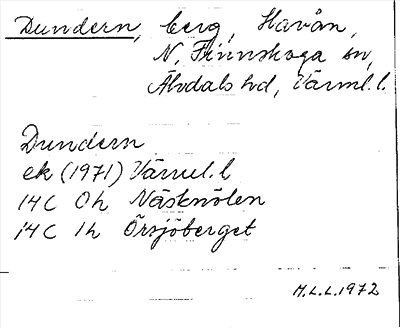 Dundern, berg, Havån,
N. Finnskoga sn,
Älvdals hd, Värml. l.
Dundern
ek (1971) Värml. l
14C 0h Näsknölen
14C 1h Örsjöberget
M.L.L. 1972